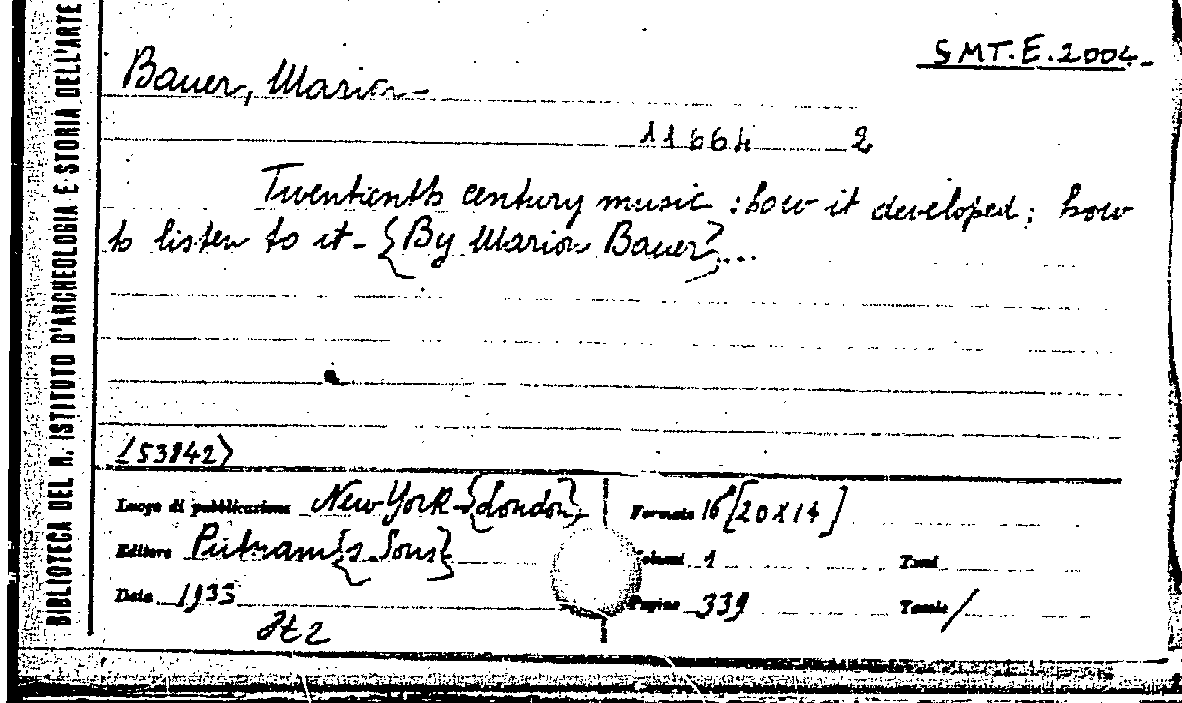 BIBLIOTECA DEL R. ISTITUTO D'ARCHEOLOGIA E STORIA DELL'ARTE
SMT.E.2004
Bauer, Marion
11664 2
Twentienth century music : how it developed; how
to listen to it - {By Marion Bauer}...
(53842)
Luogo di pubblicazione New York - {London}
Formato 16° [20x14]
Editore Putnam{s Sons}
Volumi 1 Tomi
Data 1933
Pagine 339 Tavole /